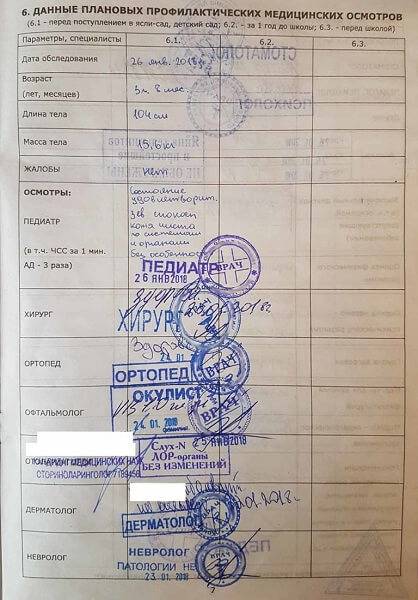 6. ДАННЫЕ ПЛАНОВЫХ ПРОФИЛАКТИЧЕСКИХ МЕДИЦИНСКИХ ОСМОТРОВ
(6.1 - перед поступлением в ясли-сад, детский сад; 6.2. - за 1 год до школы; 6.3. - перед школой)
Параметры, специалисты 6.1. 6.2. 6.3.
СТОМАТОЛОГ
Дата обследования 26 янв. 2018 г
ПСИХОЛОГ
Возраст
(лет, месяцев) 3г. 8 мес.
Длина тела 104 см
Масса тела 15,6 кг
ЖАЛОБЫ нет
ОСМОТРЫ: Состояние
удовлетворит.
ПЕДИАТР Зев спокоен
кожа чиста
по системам
и органам
(в т.ч. ЧСС за 1 мин. без особенностей
АД - 3 раза) ПЕДИАТР ВРАЧ
26 ЯНВ 2018
здоров
ХИРУРГ ХИРУРГ 2018г
Здоров
24.01.2018
ОРТОПЕД ОРТОПЕД ВРАЧ
ОКУЛИСТ
ОФТАЛЬМОЛОГ ВРАЧ
24.01.2018
Слух-N 25 ЯНВ 2018
ЛОР-органы
МЕДИЦИНСКИХ НАУК БЕЗ ИЗМЕНЕНИЙ
ДЕРМАТОЛОГ ДЕРМАТОЛОГ 01.2018г.
НЕВРОЛОГ НЕВРОЛОГ ВРАЧ
ПАТОЛОГИИ НЕ
23.01.2018